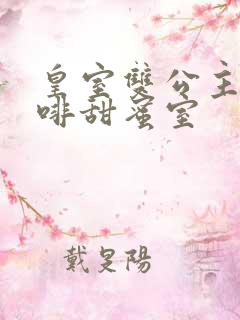 皇室雙公主
啡甜蜜室
戴旻陽